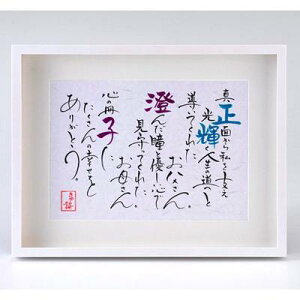 真正面から私を支え
光輝く人生の道へと
導いてくれた
お父さん
澄んだ瞳と優しい心で
見守ってくれた
お母さん
心の冊子に
たくさんの幸せを
ありがとう。